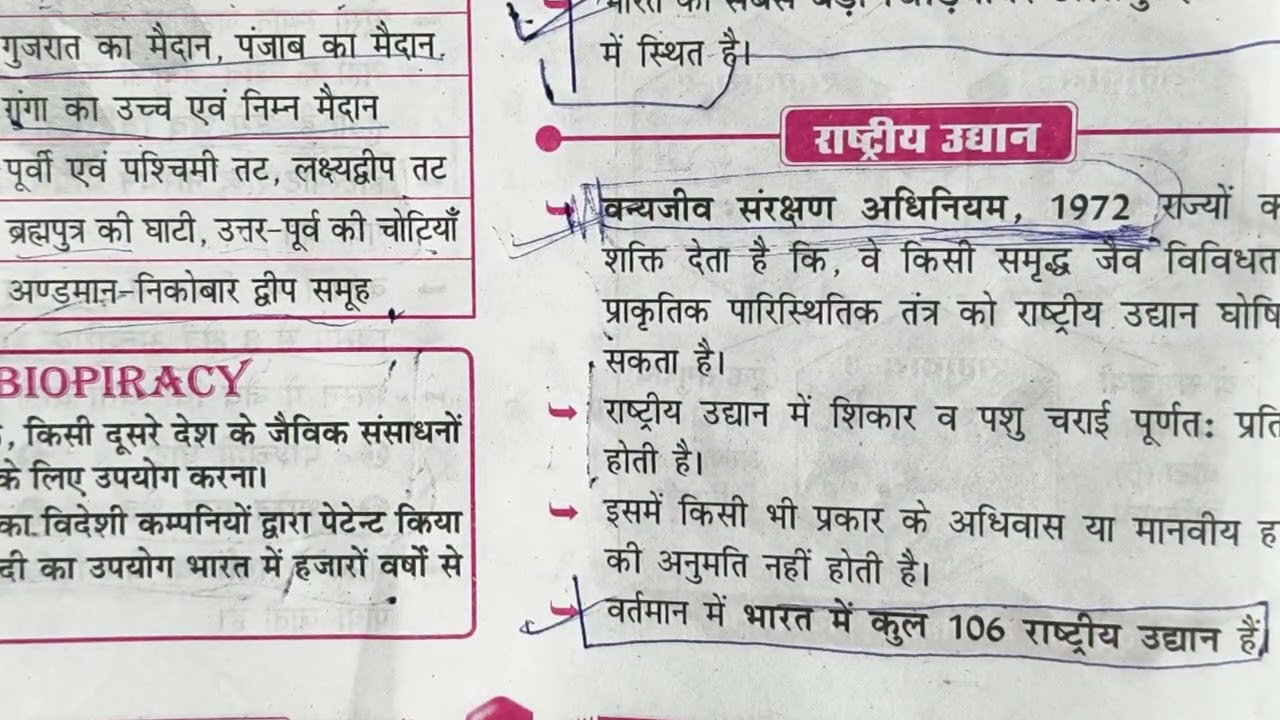 गुजरात का मैदान, पंजाब का मैदान.
गंगा का उच्च एवं निम्न मैदान
पूर्वी एवं पश्चिमी तट, लक्ष्यद्वीप तट
ब्रह्मपुत्र की घाटी, उत्तर-पूर्व की चोटियाँ
अण्डमान-निकोबार द्वीप समूह
BIOPIRACY
, किसी दूसरे देश के जैविक संसाधनों
के लिए उपयोग करना।
का विदेशी कम्पनियों द्वारा पेटेन्ट किया
दी का उपयोग भारत में हजारों वर्षों से
में स्थित है।
राष्ट्रीय उद्यान
वन्यजीव संरक्षण अधिनियम, 1972 राज्यों
शक्ति देता है कि, वे किसी समृद्ध जैव विविधत
प्राकृतिक पारिस्थितिक तंत्र को राष्ट्रीय उद्यान घोषि
सकता है।
राष्ट्रीय उद्यान में शिकार व पशु चराई पूर्णत: प्रति
होती है।
इसमें किसी भी प्रकार के अधिवास या मानवीय ह
की अनुमति नहीं होती है।
वर्तमान में भारत में कुल 106 राष्ट्रीय उद्यान हैं